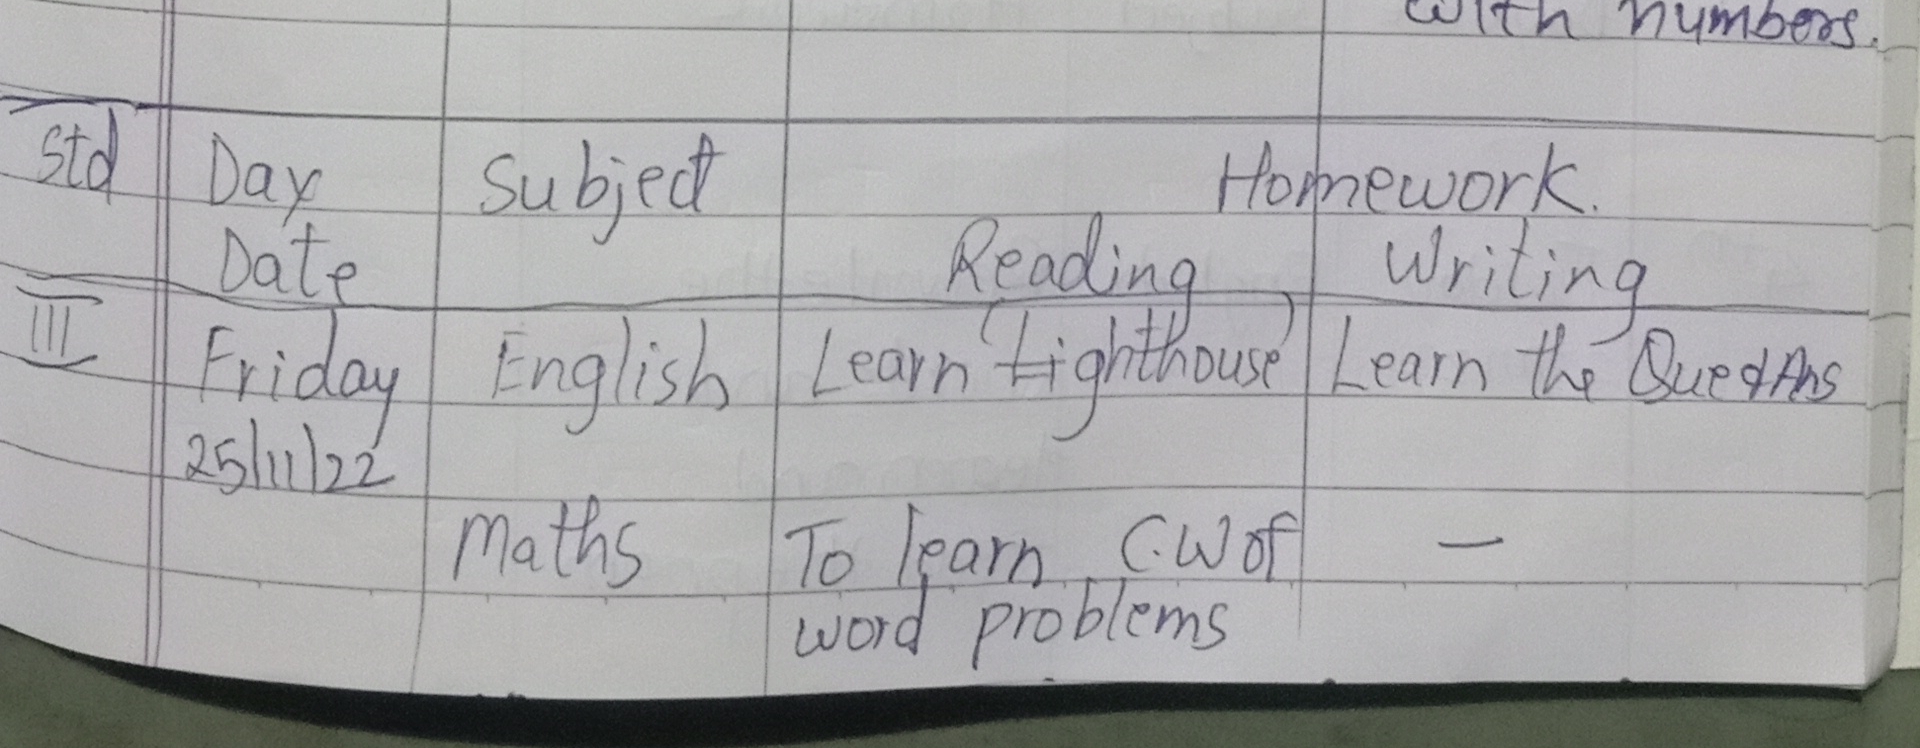 with numbers.
Std Day Subject Homework.
Date Reading Writing
III Friday English Learn (Lighthouse) Learn the Que & Ans
25/11/22
Maths To learn C.W of —
word problems